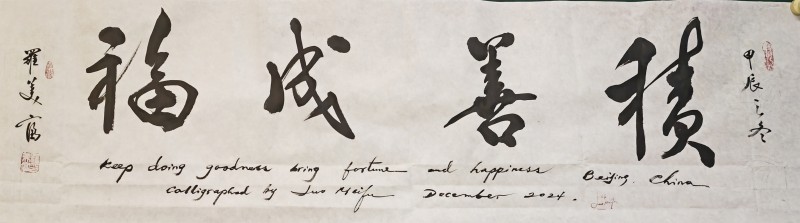 甲辰之冬
積善成福
羅美富
Keep doing goodness bring fortune and happiness Beijing, China
Calligraphed by Luo Meifu December 2024.